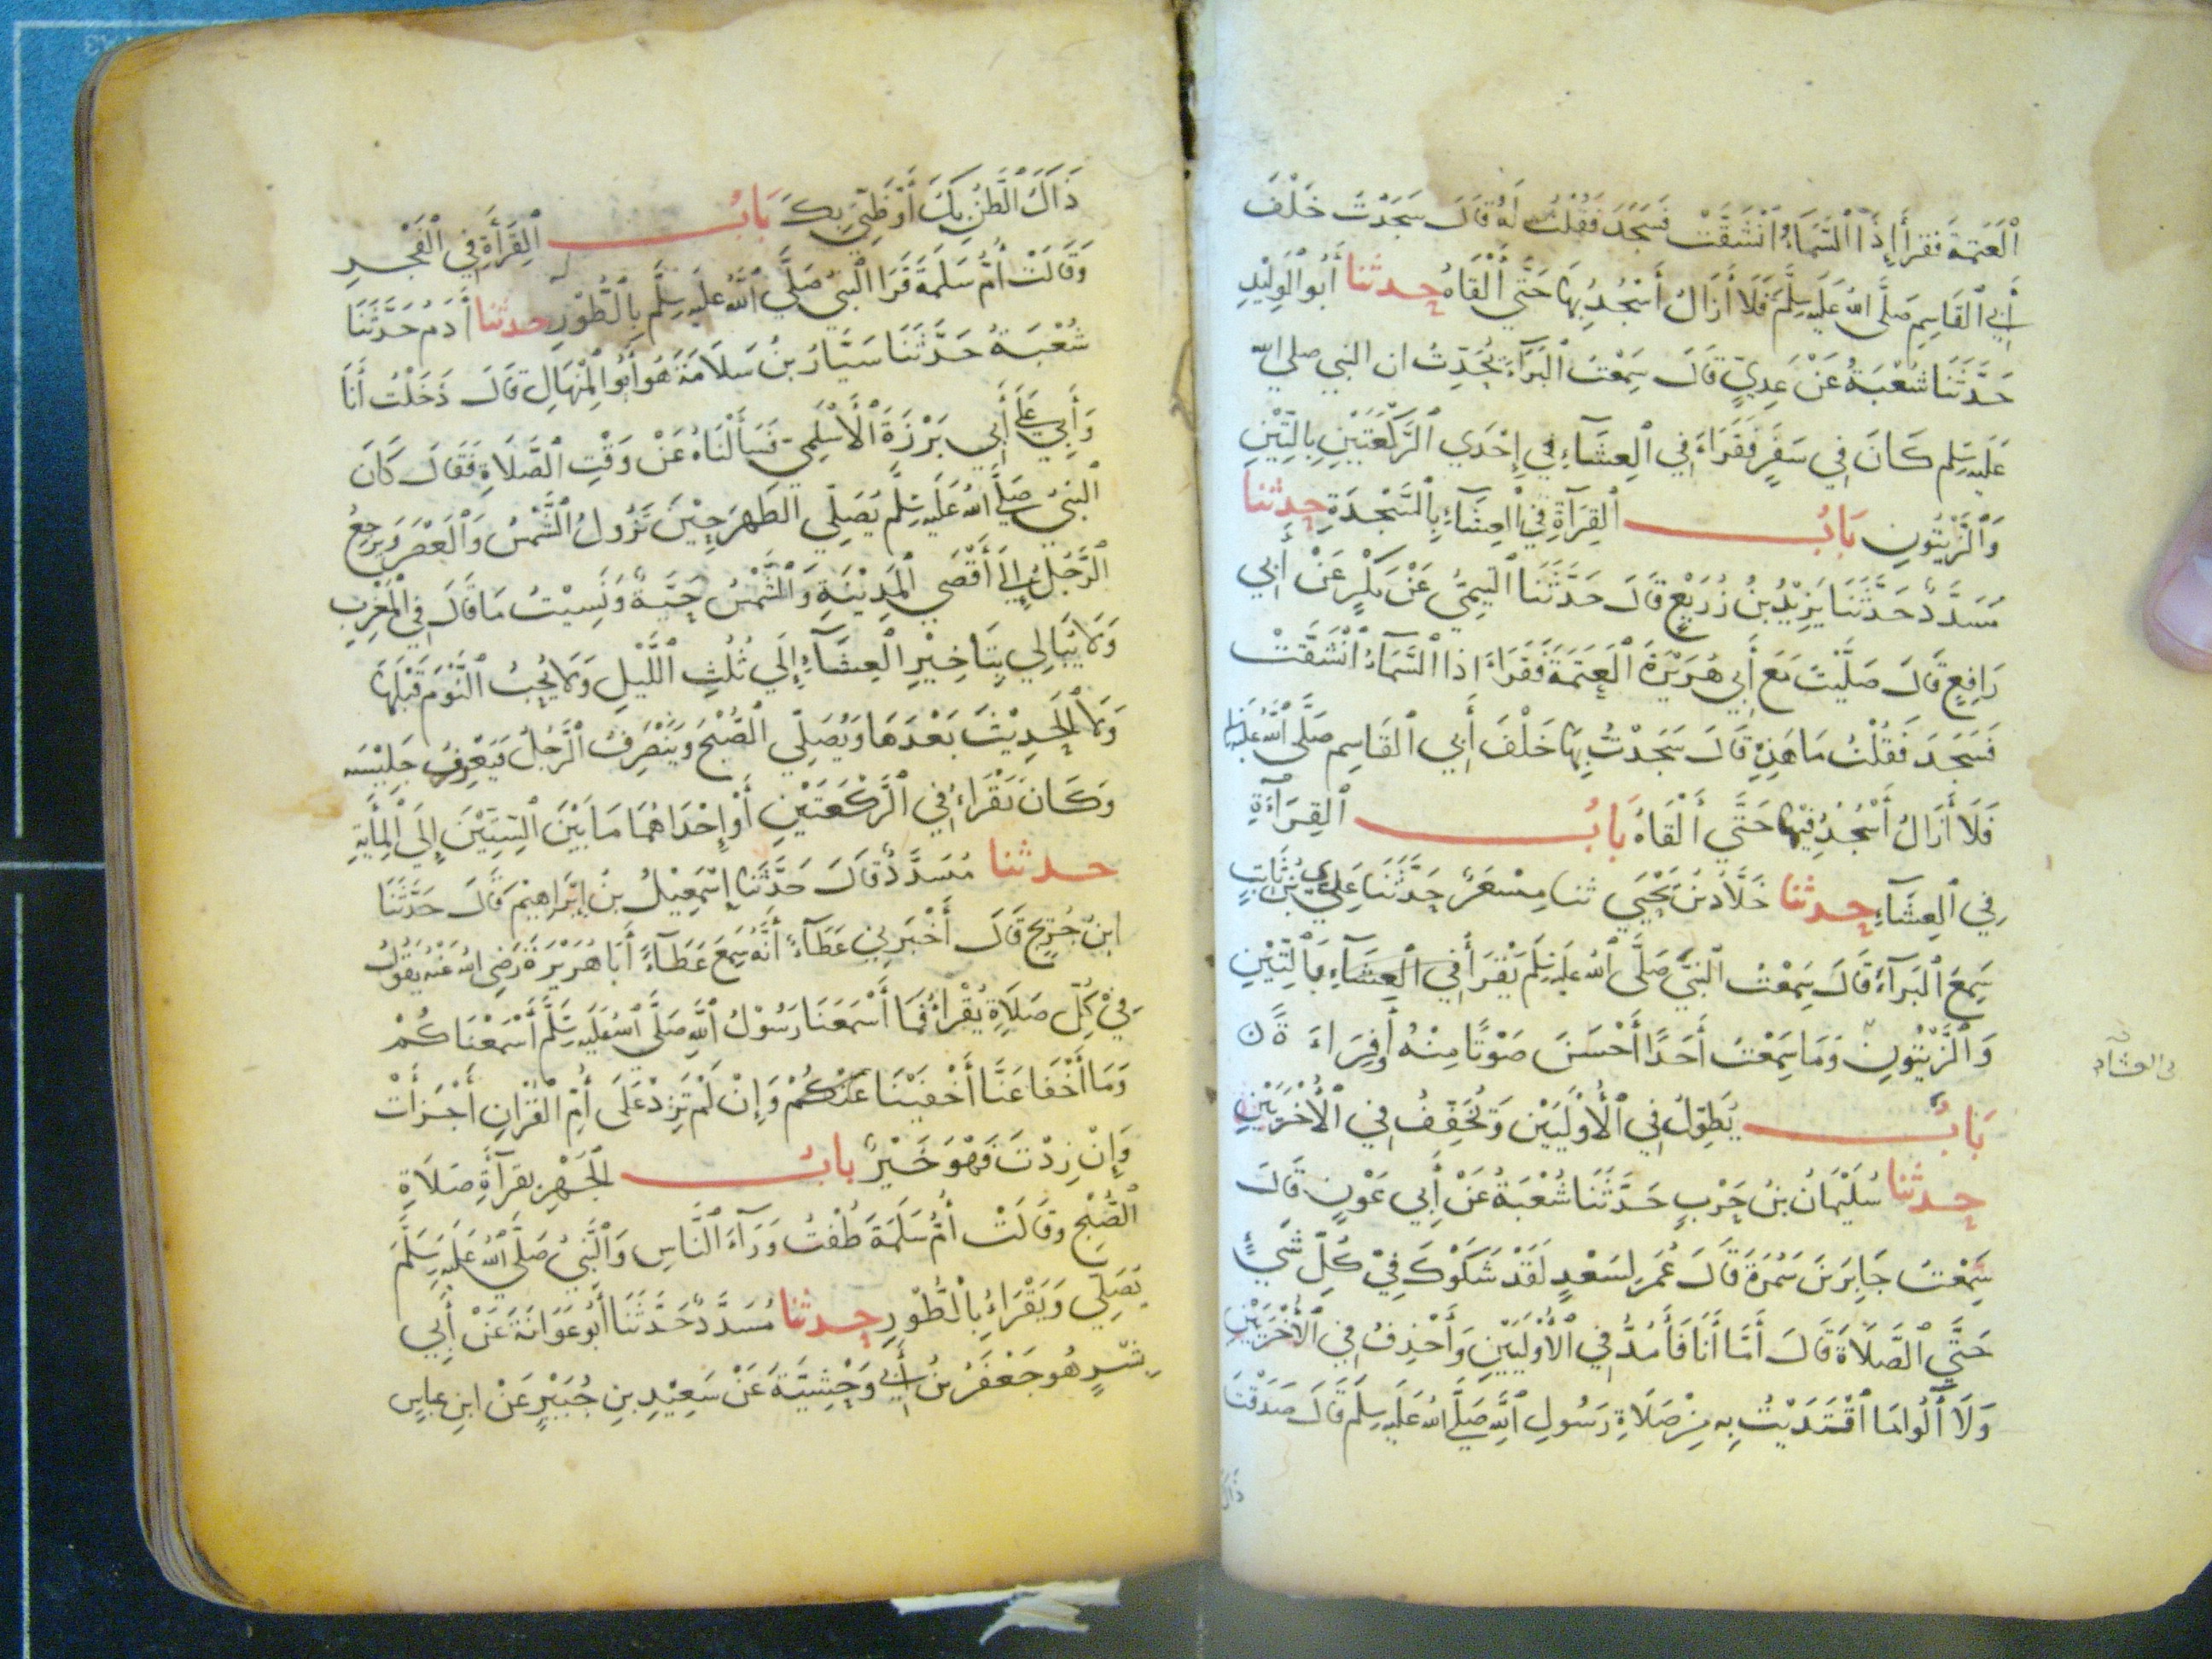 الْعَتَمَةَ فَقَرَأَ إِذَا السَّمَاءُ انْشَقَّتْ فَسَجَدَ فَقُلْتُ لَهُ قَالَ سَجَدْتُ خَلْفَ
أَبِي الْقَاسِمِ صَلَّى اللهُ عَلَيْهِ وَسَلَّمَ فَلَا أَزَالُ أَسْجُدُ بِهَا حَتَّى أَلْقَاهُ حدثنا أَبُو الْوَلِيْدِ
حَدَّثَنَا شُعْبَةُ عَنْ عَدِيٍّ قَالَ سَمِعْتُ الْبَرَآءَ يُحَدِّثُ ان النبي صلي الله
عَلَيْهِ وَسَلَّم كَانَ فِي سَفَرٍ فَقَرَاءَ فِي الْعِشَآءِ فِي إِحْدَي الرَّكْعَتَيْنِ بِالتِّيْنِ
وَالزَّيْتُونِ بَابُ الْقِرَآةِ فِي الْعِشَآءِ بِالسَّجْدَةِ حدثنا
مُسَدَّدٌ حَدَّثَنَا يَزِيْدُ بْنُ زُرَيْعٍ قَالَ حَدَّثَنَا التَّيْمِيُّ عَنْ بَكْرٍ عَنْ أَبِي
رَافِعٍ قَالَ صَلَّيْتُ مَعَ أَبِي هُرَيْرَةَ الْعَتَمَةَ فَقَرَاءَ اذا السَّمَاءُ انْشَقَّتْ
فَسَجَدَ فَقُلْتُ مَا هَذِهِ قَالَ سَجَدْتُ بِهَا خَلْفَ أَبِي الْقَاسِمِ صَلَّى اللهُ عَلَيْهِ
فَلَا أَزَالُ أَسْجُدُ فِيْهَا حَتَّي أَلْقَاهُ بَابُ الْقِرَآءَةِ
فِي الْعِشَآءِ حدثنا خَلَّادُ بْنُ يَحْيَي ثنا مِسْعَرٌ حَدَّثَنَا عَدِيُّ بْنُ ثَابِتٍ
سَمِعَ الْبَرَآءَ قَالَ سَمِعْتُ النَّبِيَّ صَلَّى اللهُ عَلَيْهِ وَسَلَّم يَقْرَأُ فِي الْعِشَآءِ بِالتِّيْنِ
وَالزَّيْتُونِ وَمَا سَمِعْتُ أَحَدًا أَحْسَنَ صَوْتًا مِنْهُ أَوْ قِرَاءَةً
في العشاء
بَابُ يُطَوِّلُ فِي الْأُوْلَيَيْنِ وَيُخَفِّفُ فِي الْأُخْرَيَيْنِ
حدثنا سُلَيْمَانُ بْنُ حَرْبٍ حَدَّثَنَا شُعْبَةُ عَنْ أَبِي عَوْنٍ قَالَ
سَمِعْتُ جَابِرَ بْنَ سَمُرَةَ قَالَ عُمَرُ لِسَعْدٍ لَقَدْ شَكَوْكَ فِيْ كُلِّ شَيْءٍ
حَتَّي الصَّلَاةِ قَالَ أَمَّا أَنَا فَأَمُدُّ فِي الْأُوْلَيَيْنِ وَأَحْذِفُ فِي الْأُخْرَيَيْنِ
وَلَا آلُوا مَا اقْتَدَيْتُ بِهِ مِنْ صَلَاةِ رَسُولِ اللهِ صَلَّي اللهُ عَلَيْهِ وَسَلَّمَ قَالَ صَدَقْتَ
ذَاكَ
ذَاكَ الظَّنُّ بِكَ أَوْ ظَنِّي بِكَ بَابُ الْقِرَأَةِ فِي الْفَجْرِ
وَقَالَتْ أُمُّ سَلَمَةَ قَرَا النَّبِيُّ صَلَّي اللهُ عَلَيْهِ وَسَلَّم بِالطُّوْرِ حدثنا أَدَمُ حَدَّثَنَا
شُعْبَةُ حَدَّثَنَا سَيَّارُ بْنُ سَلَامَةَ هُوَ أَبُو الْمِنْهَالِ قَالَ دَخَلْتُ أَنَا
وَأَبِي عَلَي أَبِي بَرْزَةَ الْأَسْلَمِيِّ فَسَأَلْنَاهُ عَنْ وَقْتِ الصَّلَاةِ فَقَالَ كَانَ
النَّبِيُّ صَلَّي اللهُ عَلَيْهِ وَسَلَّم يُصَلِّي الظُّهْرَ حِيْنَ تَزُولُ الشَّمْسُ وَالْعَصْرَ وَيَرْجِعُ
الرَّجُلُ إِلَى أَقْصَي الْمَدِيْنَةِ وَالشَّمْسُ حَيَّةٌ وَنَسِيْتُ مَا قَالَ فِي الْمَغْرِبِ
وَلَا يُبَالِي بِتَاخِيْرِ الْعِشَآءِ إِلَي ثُلُثِ اللَّيْلِ وَلَا يُحِبُّ النَّوْمَ قَبْلَهَا
وَلَا الْحَدِيْثَ بَعْدَهَا وَيُصَلِّي الصُّبْحَ وَيَنْصَرِفُ الرَّجُلُ فَيَعْرِفُ جَلِيْسَهُ
وَكَانَ يَقْرَاءُ فِي الرَّكْعَتَيْنِ أَوْ إِحْدَاهُمَا مَا بَيْنَ السِّتِّيْنَ إِلَى الْمِأَيَةِ
حدثنا مُسَدَّدٌ قَالَ حَدَّثَنَا إِسْمَعِيْلُ بْنُ إِبْرَاهِيْمَ قَالَ حَدَّثَنَا
ابْنُ جُرَيْجٍ قَالَ أَخْبَرَنِي عَطَآءٌ أَنَّهُ سَمِعَ عَطَآءً أَبَا هُرَيْرَةَ رَضِيَ اللهُ عَنْهُ يَقُوْلُ
فِيْ كُلِّ صَلَاةٍ يُقْرَاءُ فَمَا أَسْمَعَنَا رَسُوْلُ اللهِ صَلَّى اللهُ عَلَيْهِ وَسَلَّمَ أَسْمَعْنَاكُمْ
وَمَا أَخْفَا عَنَّا أَخْفَيْنَا عَنْكُمْ وَإِنْ لَمْ تَزِدْ عَلَى أُمِّ الْقُرْانِ أَجْزَأَتْ
وَإِنْ زِدْتَ فَهْوَ خَيْرٌ بابُ الْجَهْرِ بِقِرَآةِ صَلَاةِ
الصُّبْحِ وَقَالَتْ أُمُّ سَلَمَةَ طُفْتُ وَرَآءَ النَّاسِ وَالنَّبِيُّ صَلَّي اللهُ عَلَيْهِ وَسَلَّمَ
يُصَلِّي وَيَقْرَاءُ بِالطُّوْرِ حدثنا مُسَدَّدٌ حَدَّثَنَا أَبُو عَوَانَةَ عَنْ أَبِي
بِشْرٍ هُو جَعْفَرُ بْنُ أَبِي وَحْشِيَّةَ عَنْ سَعِيْدِ بْنِ جُبَيْرٍ عَنْ ابنِ عباسٍ